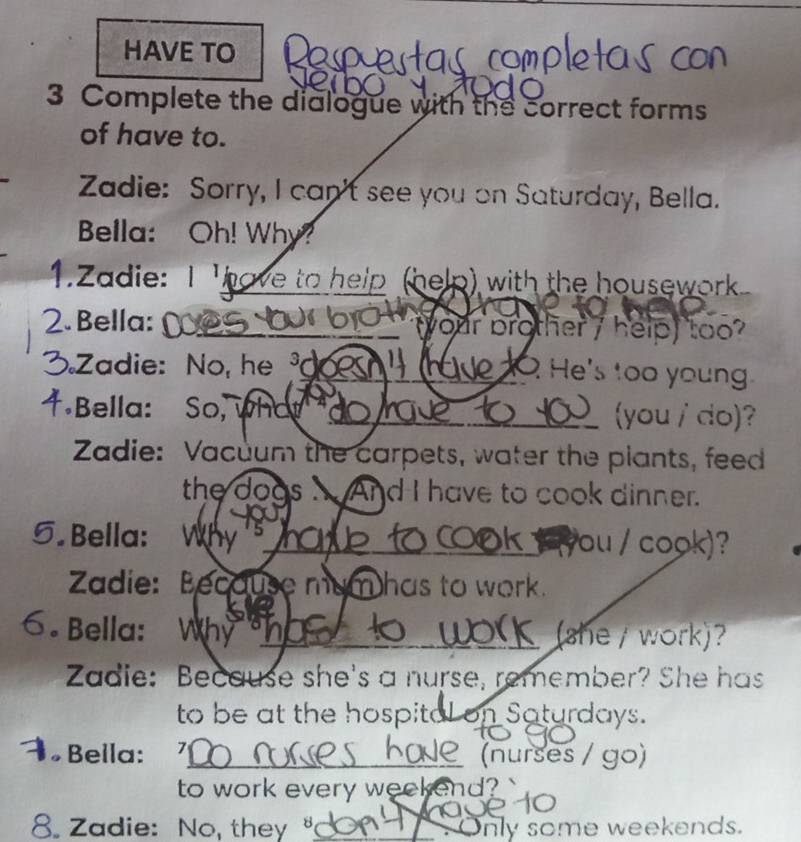 HAVE TO Respuestas completas con
verbo y todo
3 Complete the dialogue with the correct forms
of have to.
Zadie: Sorry, I can't see you on Saturday, Bella.
Bella: Oh! Why?
1. Zadie: I ¹have to help (help) with the housework.
2. Bella: Does your brother have to help (your brother / help) too?
3. Zadie: No, he ³doesn't have to. He's too young.
4. Bella: So, what do have to you (you / do)?
Zadie: Vacuum the carpets, water the plants, feed
the dogs ... And I have to cook dinner.
5. Bella: Why ⁵ you have to cook (you / cook)?
Zadie: Because mum has to work.
6. Bella: Why ⁶ she has to work (she / work)?
Zadie: Because she's a nurse, remember? She has
to be at the hospital on Saturdays.
7. Bella: ⁷Do nurses have to go (nurses / go)
to work every weekend?
8. Zadie: No, they ⁸don't have to. Only some weekends.